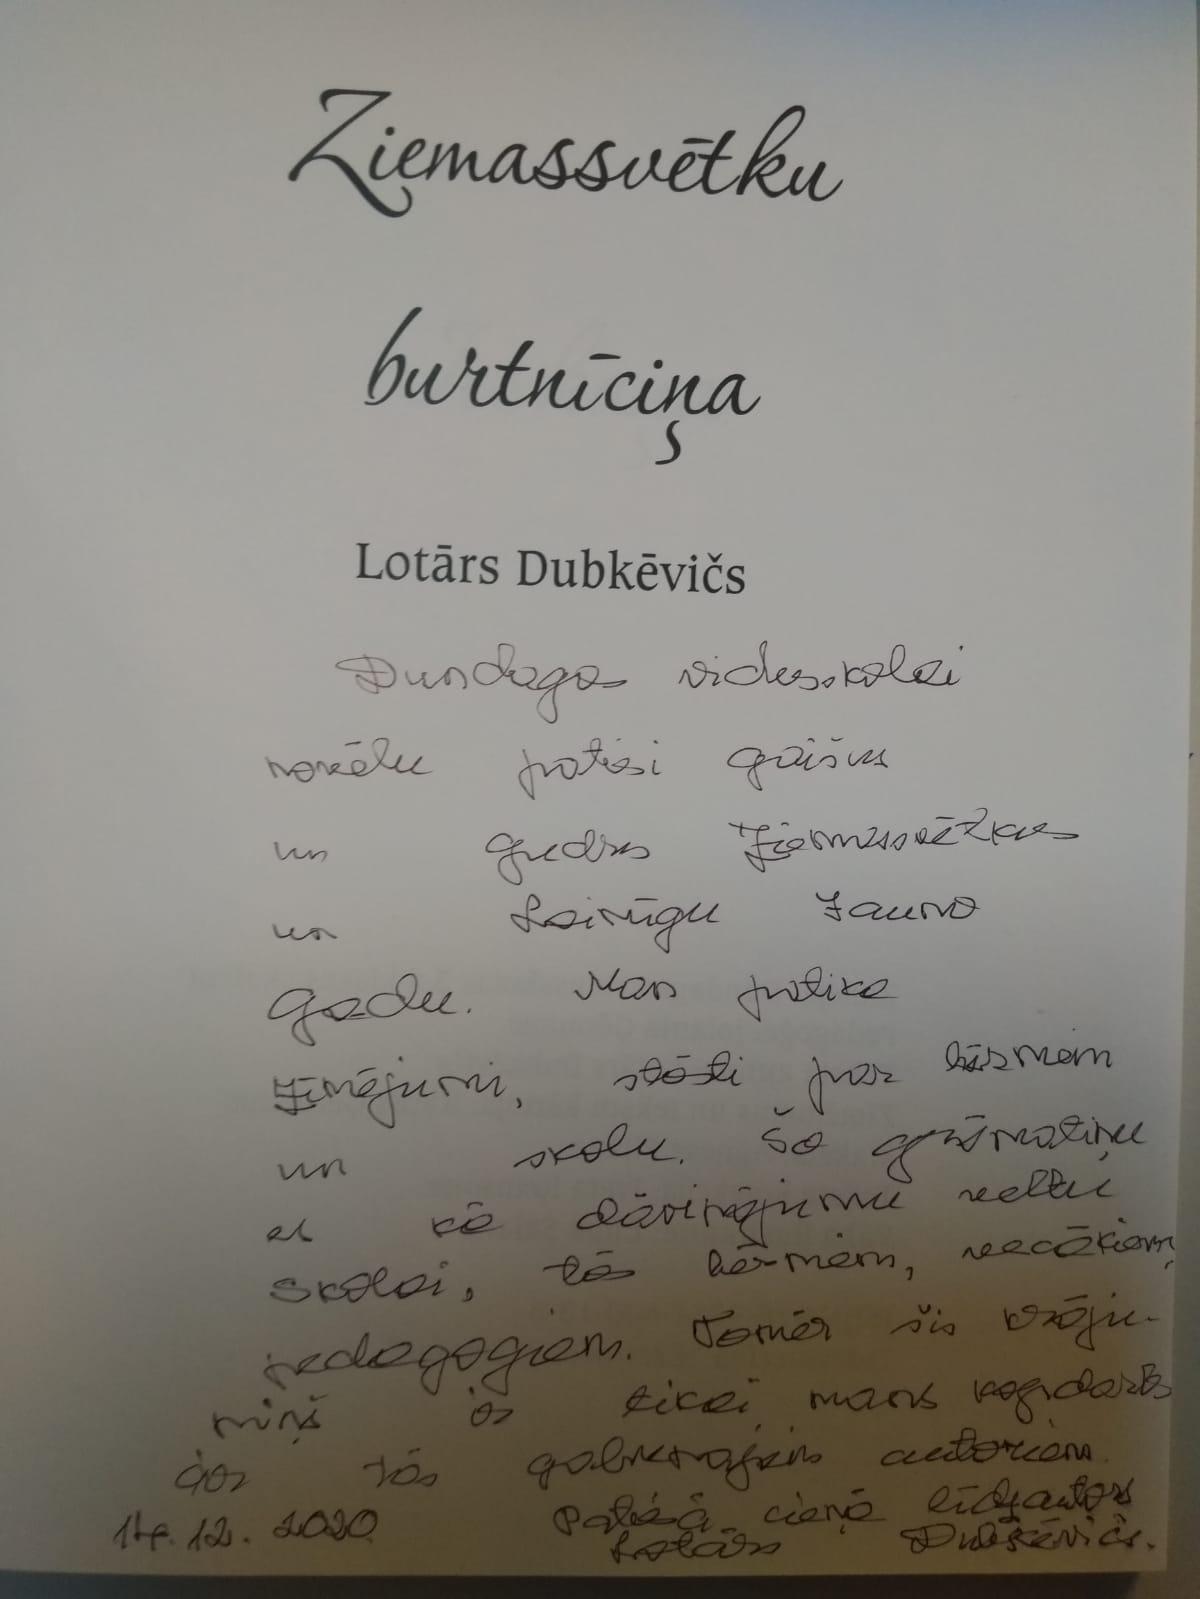 Ziemassvētku
burtnīciņa
Lotārs Dubkēvičs
Dundagas vidusskolai
novēlu patiesi gaišus
un gudrus Ziemassvētkus
un Laimīgu Jauno
gadu. Man patika
zīmējumi, stāsti par bērniem
un skolu. Šo grāmatiņu
es kā dāvinājumu veltu
skolai, tās bērniem, vecākiem,
pedagogiem. Tomēr šis
ir tikai mans kopdarbs
ar tās galvenajiem autoriem.
14.12.2020 Patiesā cieņā līdzautors
Lotārs Dubkēvičs.